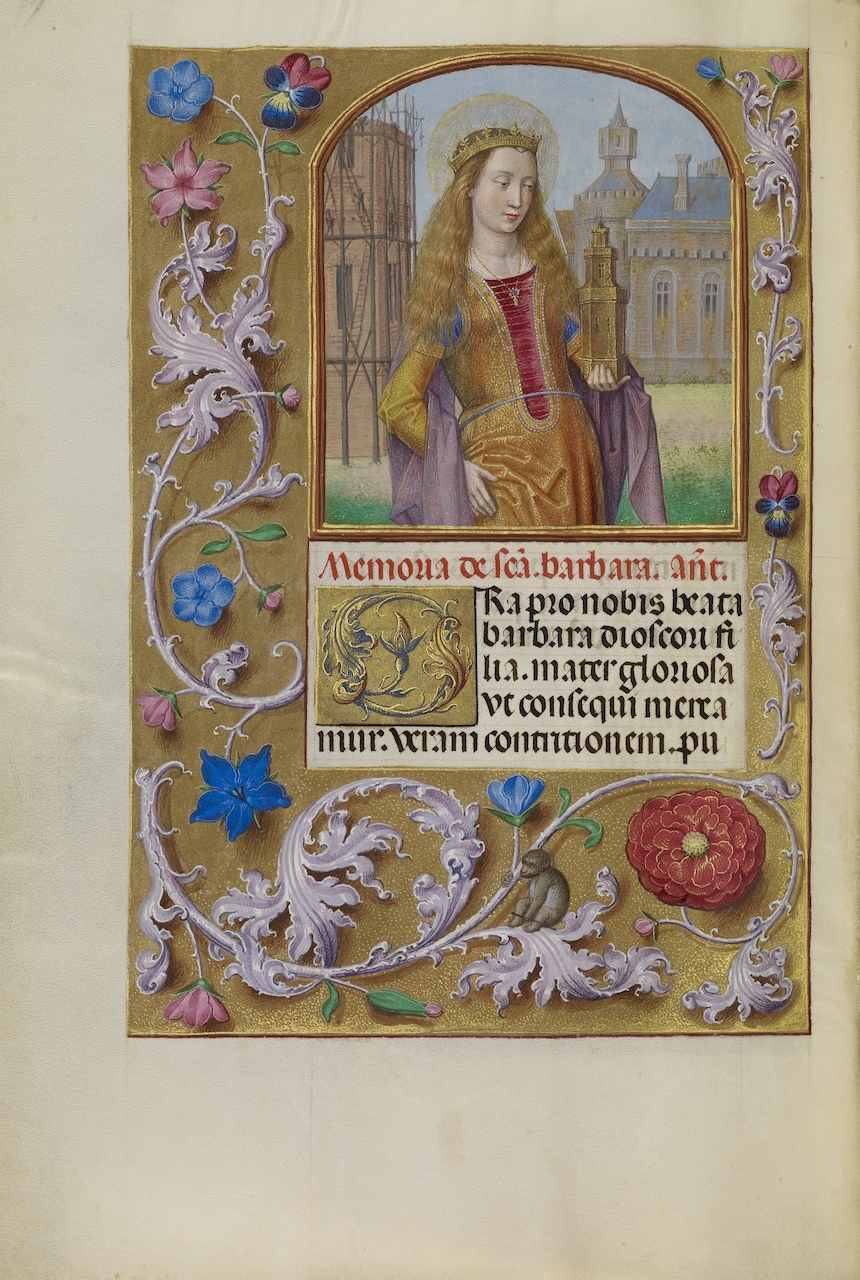 Memoria de scā. barbara. añt.
ORa pro nobis beata
barbara dioscori fi
lia. mater gloriosa
vt consequi merea
mur. veram contritionem. pu